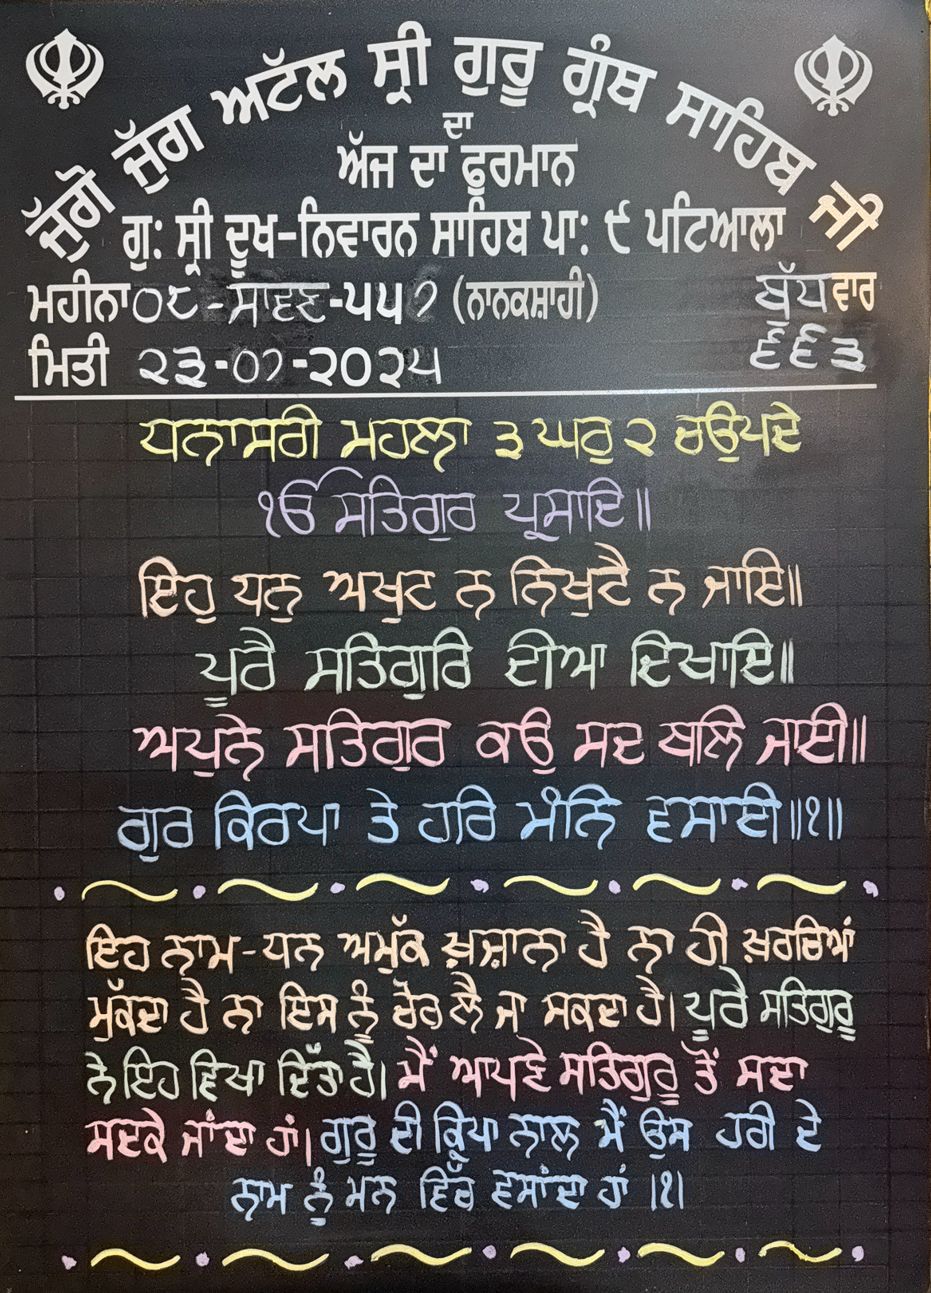 ਜੁੱਗੋ ਜੁੱਗ ਅਟੱਲ ਸ੍ਰੀ ਗੁਰੂ ਗ੍ਰੰਥ ਸਾਹਿਬ ਜੀ
ਦਾ
ਅੱਜ ਦਾ ਫੁਰਮਾਨ
ਗੁ: ਸ੍ਰੀ ਦੂਖ-ਨਿਵਾਰਨ ਸਾਹਿਬ ਪਾ: ੯ ਪਟਿਆਲਾ
ਮਹੀਨਾ ੦੮-ਸਾਵਣ-੫੫੭ (ਨਾਨਕਸ਼ਾਹੀ) ਬੁੱਧਵਾਰ
ਮਿਤੀ ੨੩-੦੭-੨੦੨੫ ੬੬੩
ਧਨਾਸਰੀ ਮਹਲਾ ੩ ਘਰੁ ੨ ਚਉਪਦੇ
ੴ ਸਤਿਗੁਰ ਪ੍ਰਸਾਦਿ॥
ਇਹੁ ਧਨੁ ਅਖੁਟੁ ਨ ਨਿਖੁਟੈ ਨ ਜਾਇ॥
ਪੂਰੈ ਸਤਿਗੁਰਿ ਦੀਆ ਦਿਖਾਇ॥
ਅਪੁਨੇ ਸਤਿਗੁਰ ਕਉ ਸਦ ਬਲਿ ਜਾਈ॥
ਗੁਰ ਕਿਰਪਾ ਤੇ ਹਰਿ ਮੰਨਿ ਵਸਾਈ॥੧॥
ਇਹ ਨਾਮ-ਧਨ ਅਮੁੱਕ ਖ਼ਜ਼ਾਨਾ ਹੈ ਨਾ ਹੀ ਖ਼ਰਚਿਆਂ
ਮੁੱਕਦਾ ਹੈ ਨਾ ਇਸ ਨੂੰ ਚੋਰ ਲੈ ਜਾ ਸਕਦਾ ਹੈ। ਪੂਰੈ ਸਤਿਗੁਰੂ
ਨੇ ਇਹ ਵਿਖਾ ਦਿੱਤਾ ਹੈ। ਮੈਂ ਆਪਣੇ ਸਤਿਗੁਰੂ ਤੋਂ ਸਦਾ
ਸਦਕੇ ਜਾਂਦਾ ਹਾਂ। ਗੁਰੂ ਦੀ ਕ੍ਰਿਪਾ ਨਾਲ ਮੈਂ ਉਸ ਹਰੀ ਦੇ
ਨਾਮ ਨੂੰ ਮਨ ਵਿੱਚ ਵਸਾਂਦਾ ਹਾਂ ।੧।